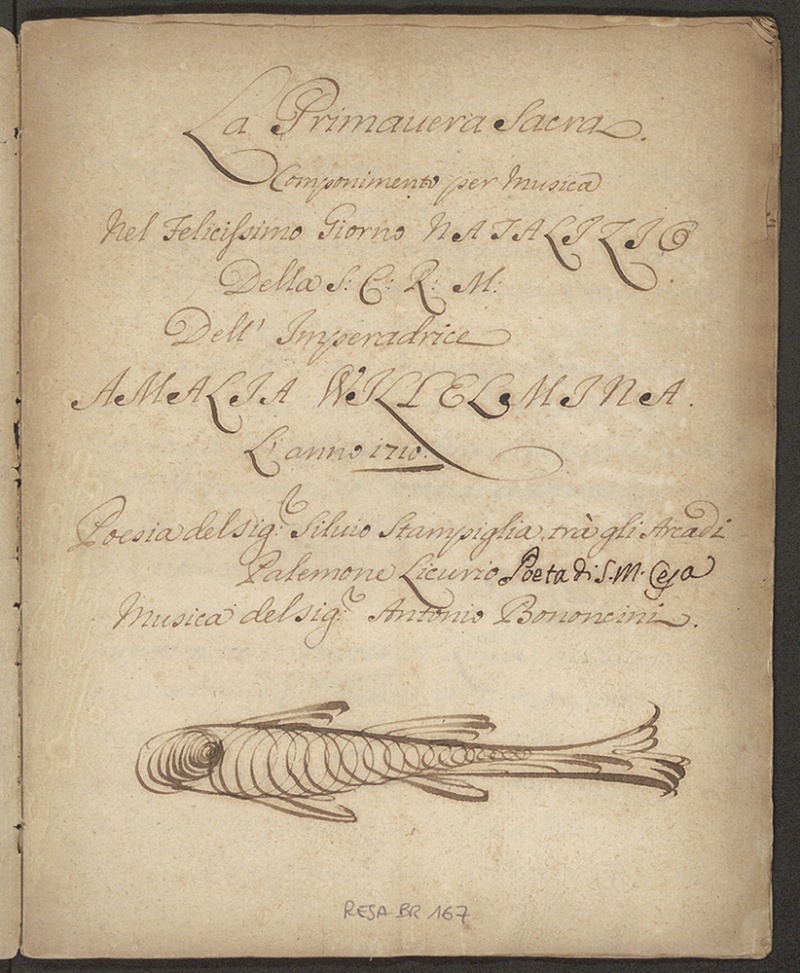 La Primauera Sacra.
Componimento per Musica
Nel Felicissimo Giorno NATALIZIO
Della S: C: R: M:
Dell' Imperadrice
AMALIA WILLELMINA.
L'anno 1710.
Poesia del sig:r Siluio Stampiglia, trà gli Arcadi
Palemone Licurio Poeta di S. M. Cesa
Musica del sig:r Antonio Bononcini.
RESA BR 167